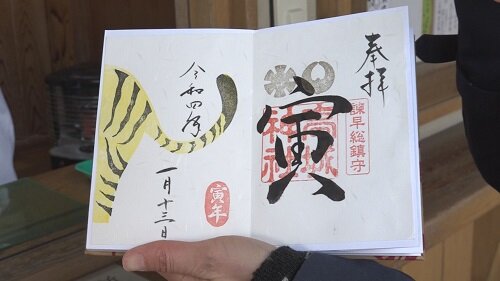 奉拝
諫早総鎮守
寅
高城神社
令和四年
一月十三日
寅年